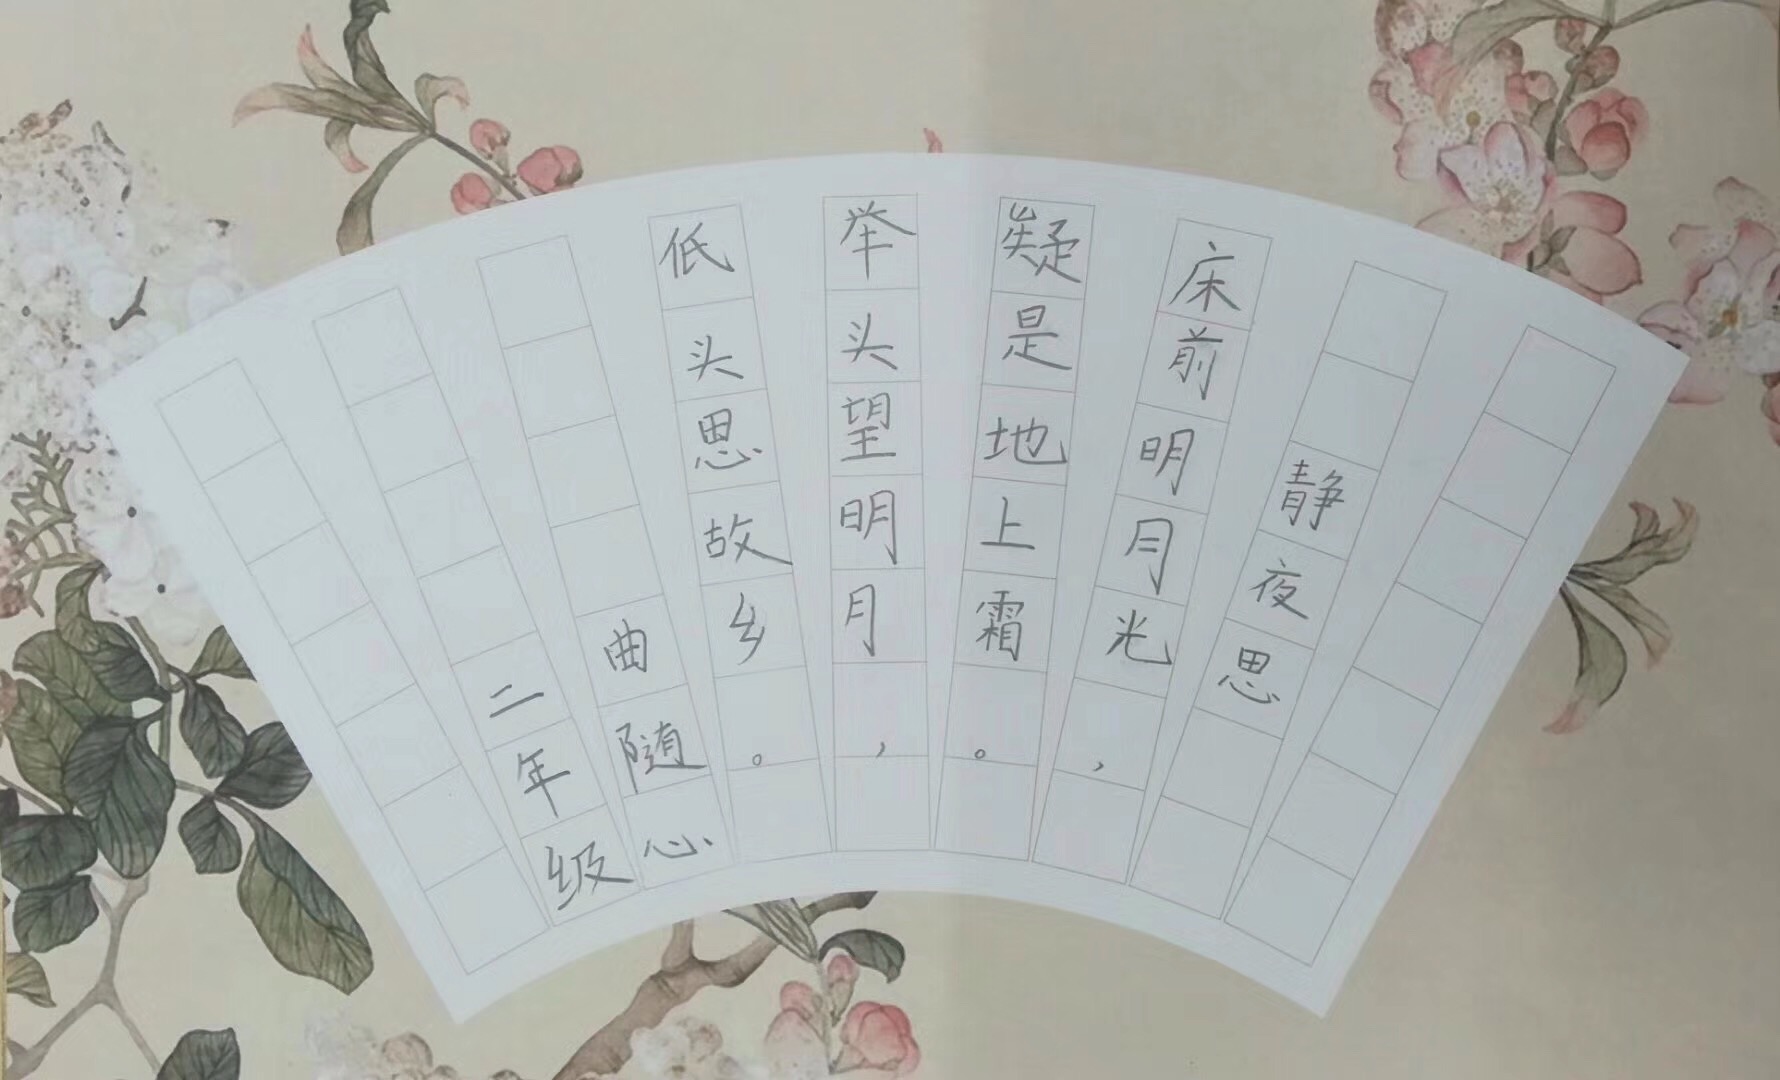 静夜思
床前明月光，
疑是地上霜。
举头望明月，
低头思故乡。
曲随心
二年级